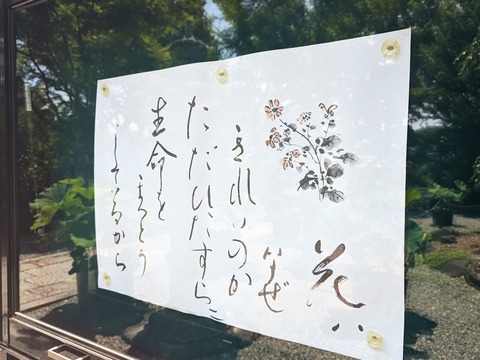 花は
なぜ
きれいのか
ただひたすらに
生命を
まっとう
しているから